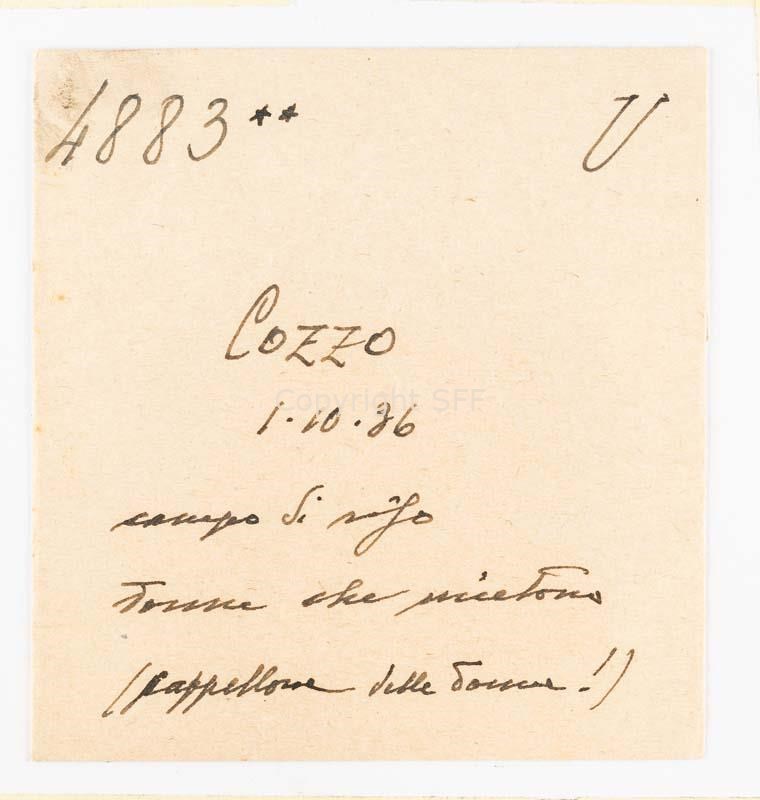 4883** U
Cozzo
Copyright SFF
1.10.36
campo di riso
donne che mietono
(cappellone delle donne!)